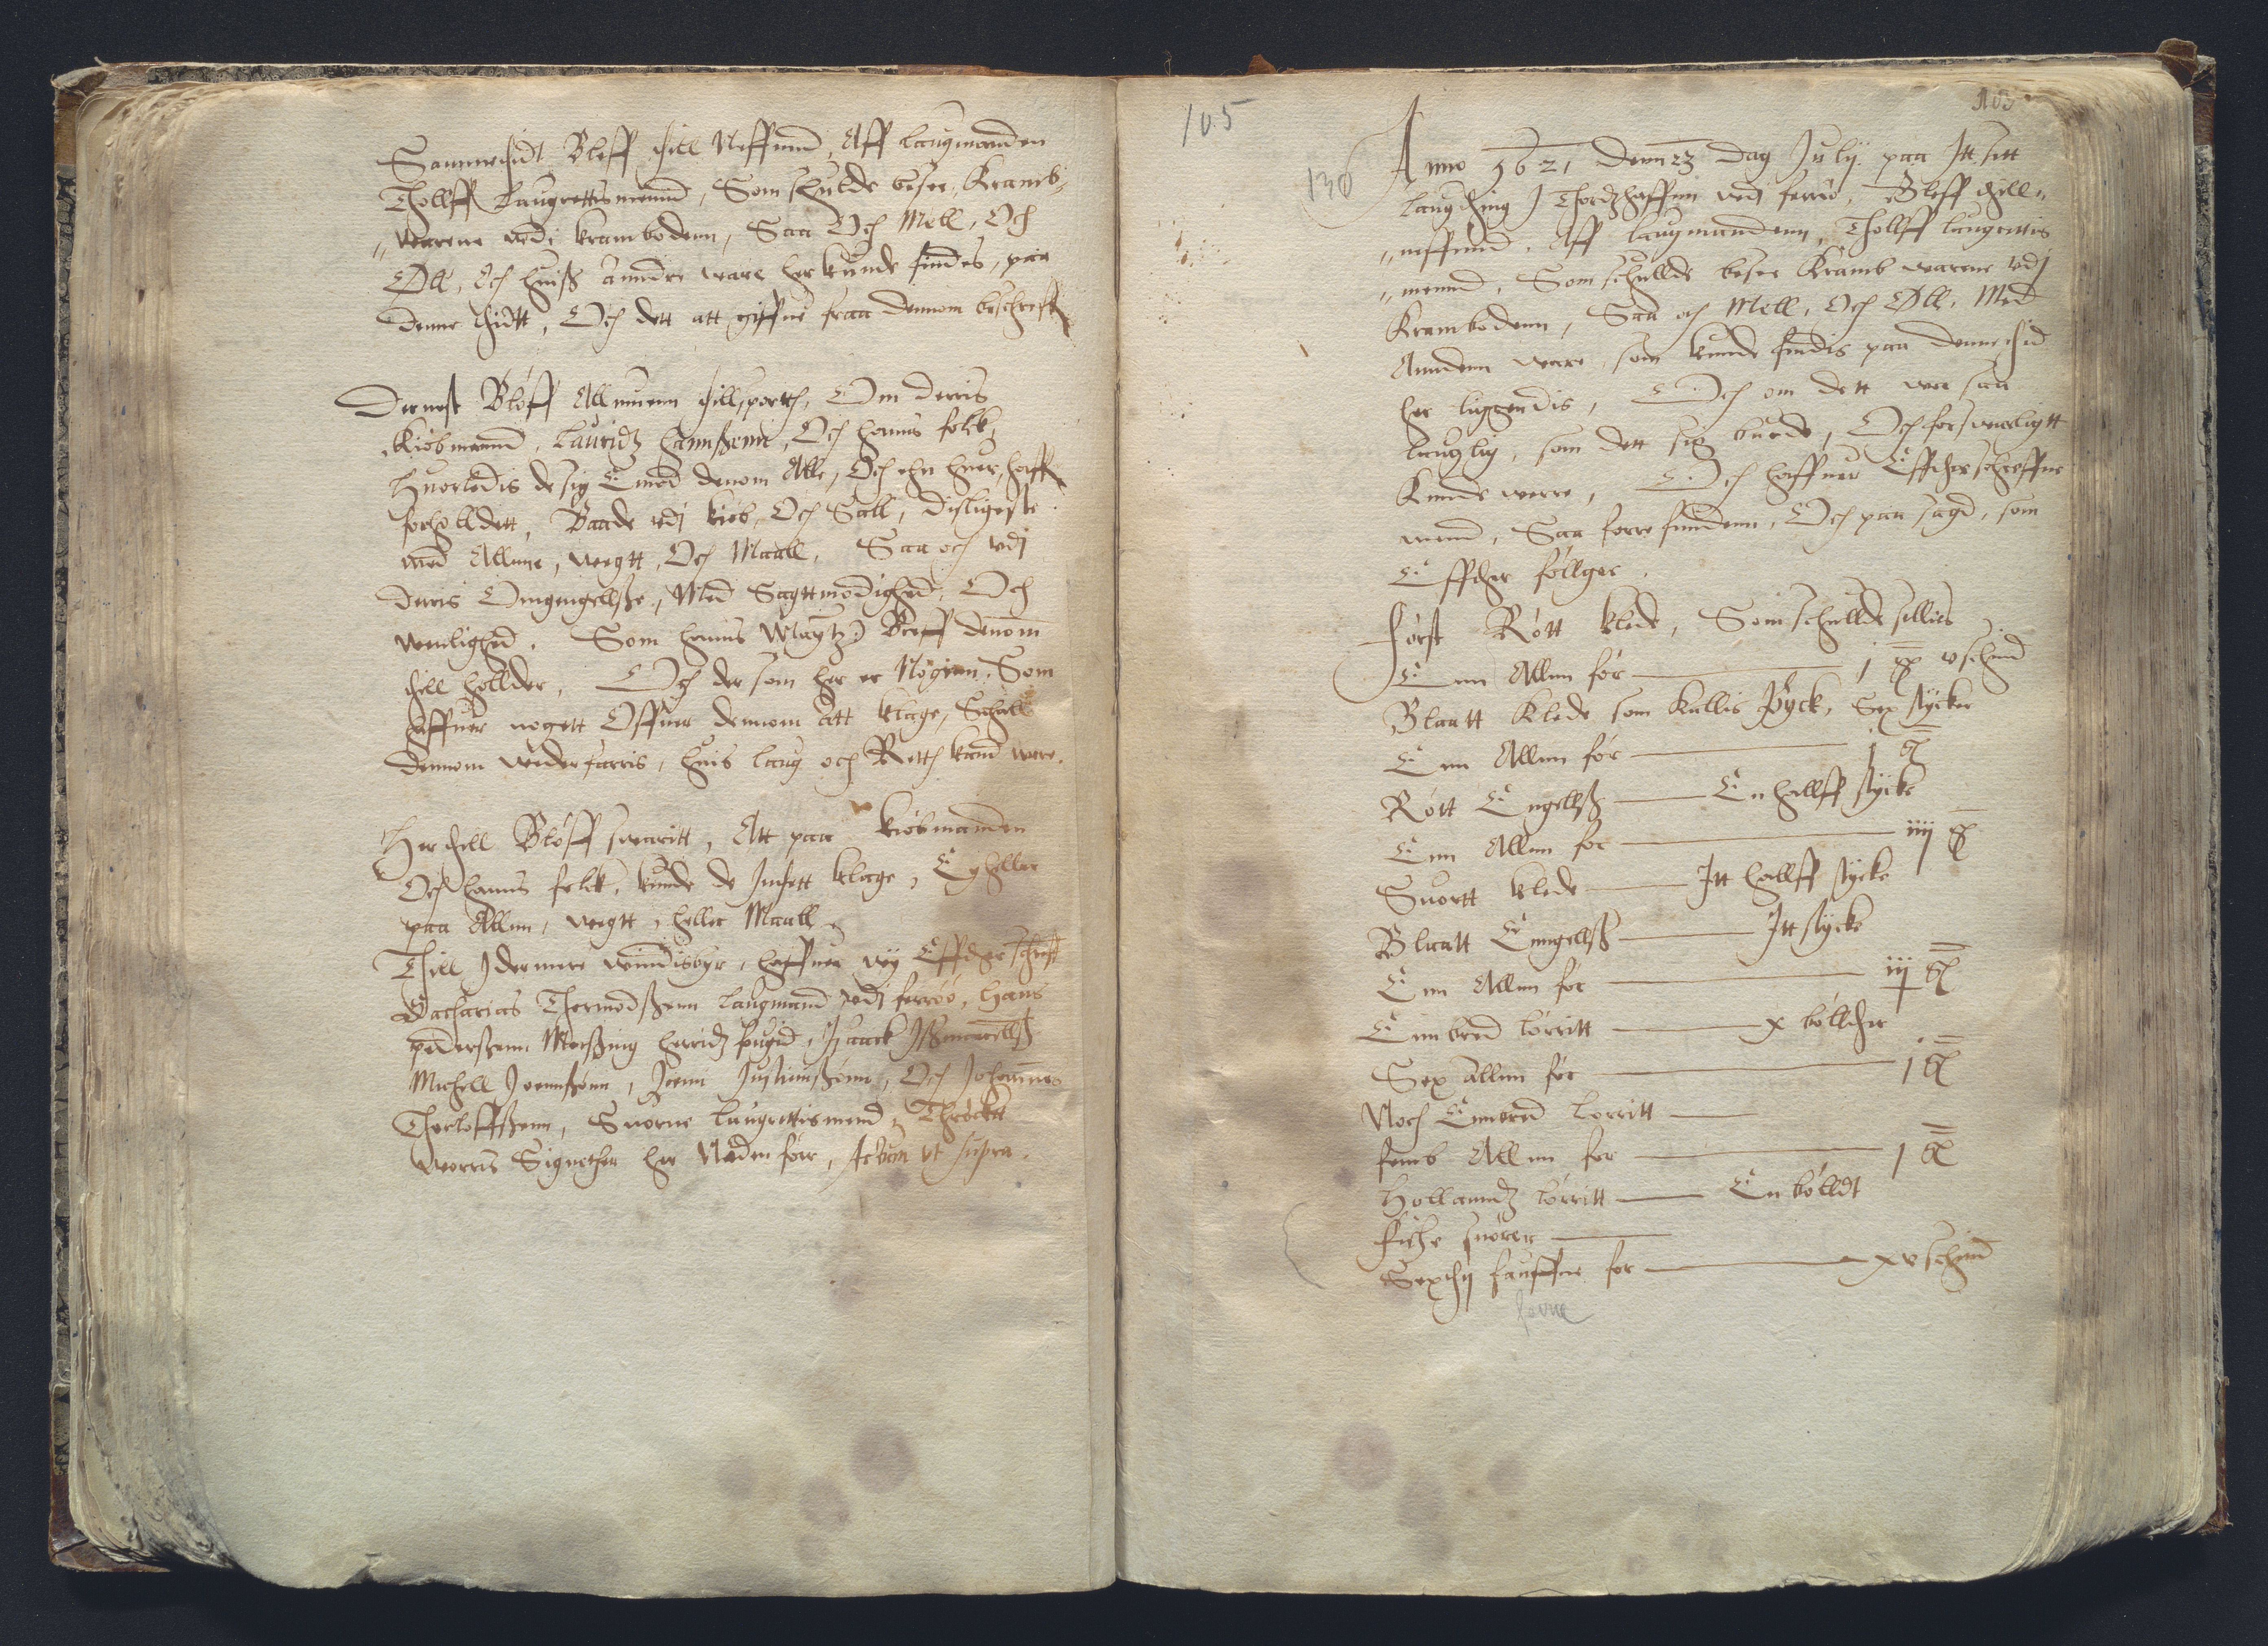 Sammetidt Bleff till Neffnnd, Aff Laugmanden
Tholff Laugrettismennd, Som schulde besee, Kramb,,
,,warene wdj krambodenn, Saa Och Mell, Och
Øll, Och huiß anndre ware her kunde findes, paa
denne thidtt, Och dett att giffue fraa dennom beschreff
Dernest Bløff Allmuenn thillsportt, Om derris
kiøbmannd, Lauridz hannßenn, Och hanns folck,
huorledis de sig Emod denom Alle, Och ehn huer, haff
forholldett, Baade wdj kiøb, Och Sall, disligeste
med Allnne, wegtt, Och Maall, Saa och wdj
deris Omgengellße, Med Sagttmodighed, Och
wenlighed. Som hanns Maytz: Breff denom
thill holder, Och der som her er Nogenn, Som
haffuer nogett Offuer dennom att klage, Schall
dennom wederfarris, huis laug och Rett kand were.
Her thill Bløff swaritt, Att paa kiøbmanden
Och hanns folck, kunde de Inthett klage, Ey heller
paa Allnn, wegtt, heller Maall
Thill Ydermere windisbyr, haffuer wy Effther schreff
Zacharias Thormodßenn laugmand wdj ferrøø, Hans
pederßenn Morßing herridz fougid, Isaack Ißmaellß
Michell Joennßønn, Joenn Justinnßønn, Och Johannes
Thorloffßenn, Suorne laugrettismend, Thrøckt
worris Signether her Neden för, Actum vt supra.
105
103
130
Anno 1621 denn 23 dag Julij paa Itt sitt
laugthing J Thorßhaffnn wdj ferrø, Bleff thill,,
,,neffnnd, Aff laugmandenn, Thollff laugrettis
,,mennd, Som schullde besee Kramb warene wdj
Krambodenn, Saa och Mell, Och Øll, Med
Anndenn ware som kunde findis paa denne tid
her liggendis, Och om dett war saa
lauglig, som dett sig burde, Och forswarligtt
kunde were, Och haffuer Effther schreffne
mend, Saa forre fundenn, Och paa sagd, som
Effther föllger.
Först Rött klede, Som schullde sellies
Enn Allnn för j v schind
Blaatt Klede som kallis Pÿck, Sex stycker
Enn Allnn för j
Rött Engellß Enhallff stycke
Enn Allnn for iiij
Suortt klede Itt hallff stycke
Blaatt Enngellß Itt stycke
Enn Allnn for iij
Enn bred lörritt x böllther
Sex allnn för j
Noch Ennbred lorritt
femb Allnn for j
Hollanndz lörritt En bölldt
fiske snörer
Sexthij fauffne for xv schind
favne